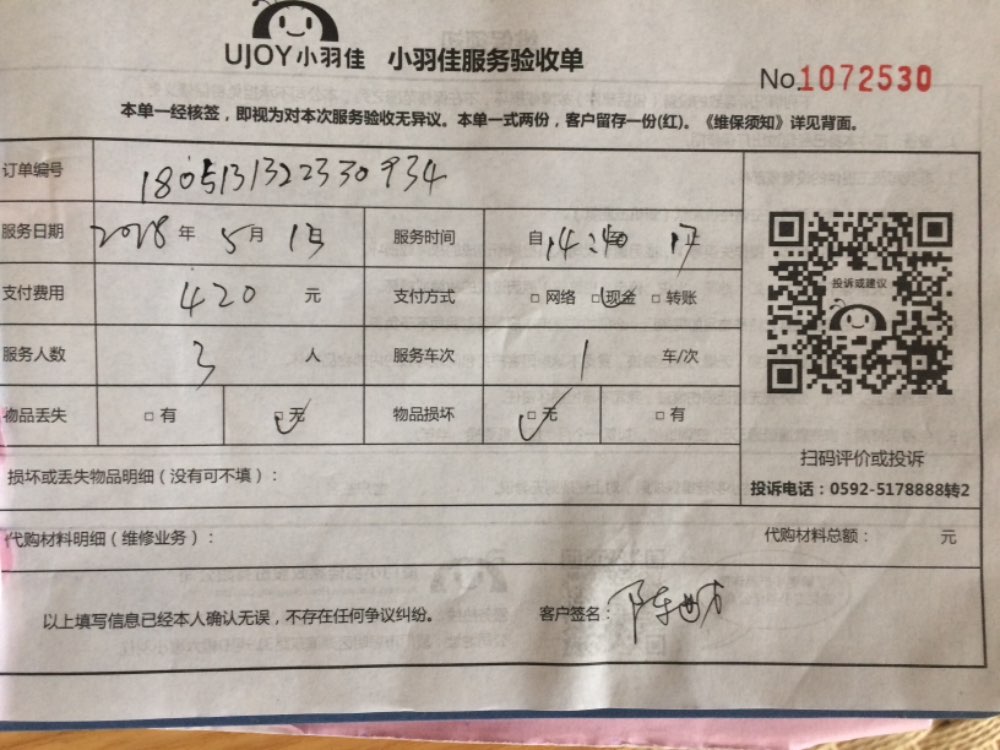 UJOY小羽佳 小羽佳服务验收单
No.1072530
本单一经核签，即视为对本次服务验收无异议。本单一式两份，客户留存一份(红)。《维保须知》详见背面。
订单编号 1805131322330934
服务日期 2018年 5月 13日 服务时间 自14:40 17
支付费用 420 元 支付方式 □网络 □现金 □转账
服务人数 3 人 服务车次 1 车/次
物品丢失 □有 □无 物品损坏 □无 □有
投诉或建议
扫码评价或投诉
投诉电话：0592-5178888转2
损坏或丢失物品明细（没有可不填）：
代购材料明细（维修业务）： 代购材料总额： 元
以上填写信息已经本人确认无误，不存在任何争议纠纷。 客户签名：